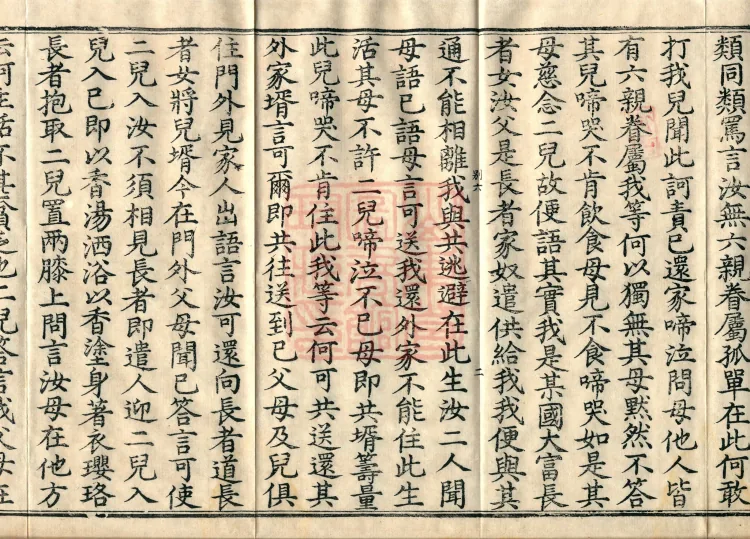 類同類罵言汝無六親眷屬孤單在此何敢
打我兒聞此訶責已還家啼泣問母他人皆
有六親眷屬我等何以獨無其母默然不答
其兒啼哭不肯飲食母見不食啼哭如是其
母慈念二兒故便語其實我是某國大富長
者女汝父是長者家奴遣供給我我便與其
二
通不能相離我與共逃避在此生汝二人聞
母語已語母言可送我還外家不能住此生
活其母不許二兒啼泣不已母即共壻籌量
此兒啼哭不肯住此我等云何可共送還其
外家壻言可爾即共往送到已父母及兒俱
住門外見家人出語言汝可還向長者道長
者女將兒壻今在門外父母聞已答言可使
二兒入汝不須相見長者即遣人迎二兒入
兒入已即以香湯洒浴以香塗身著衣瓔珞
長者抱取二兒置兩膝上問言汝母在他方
云何生活不甚貧乏也二兒答言我父母在